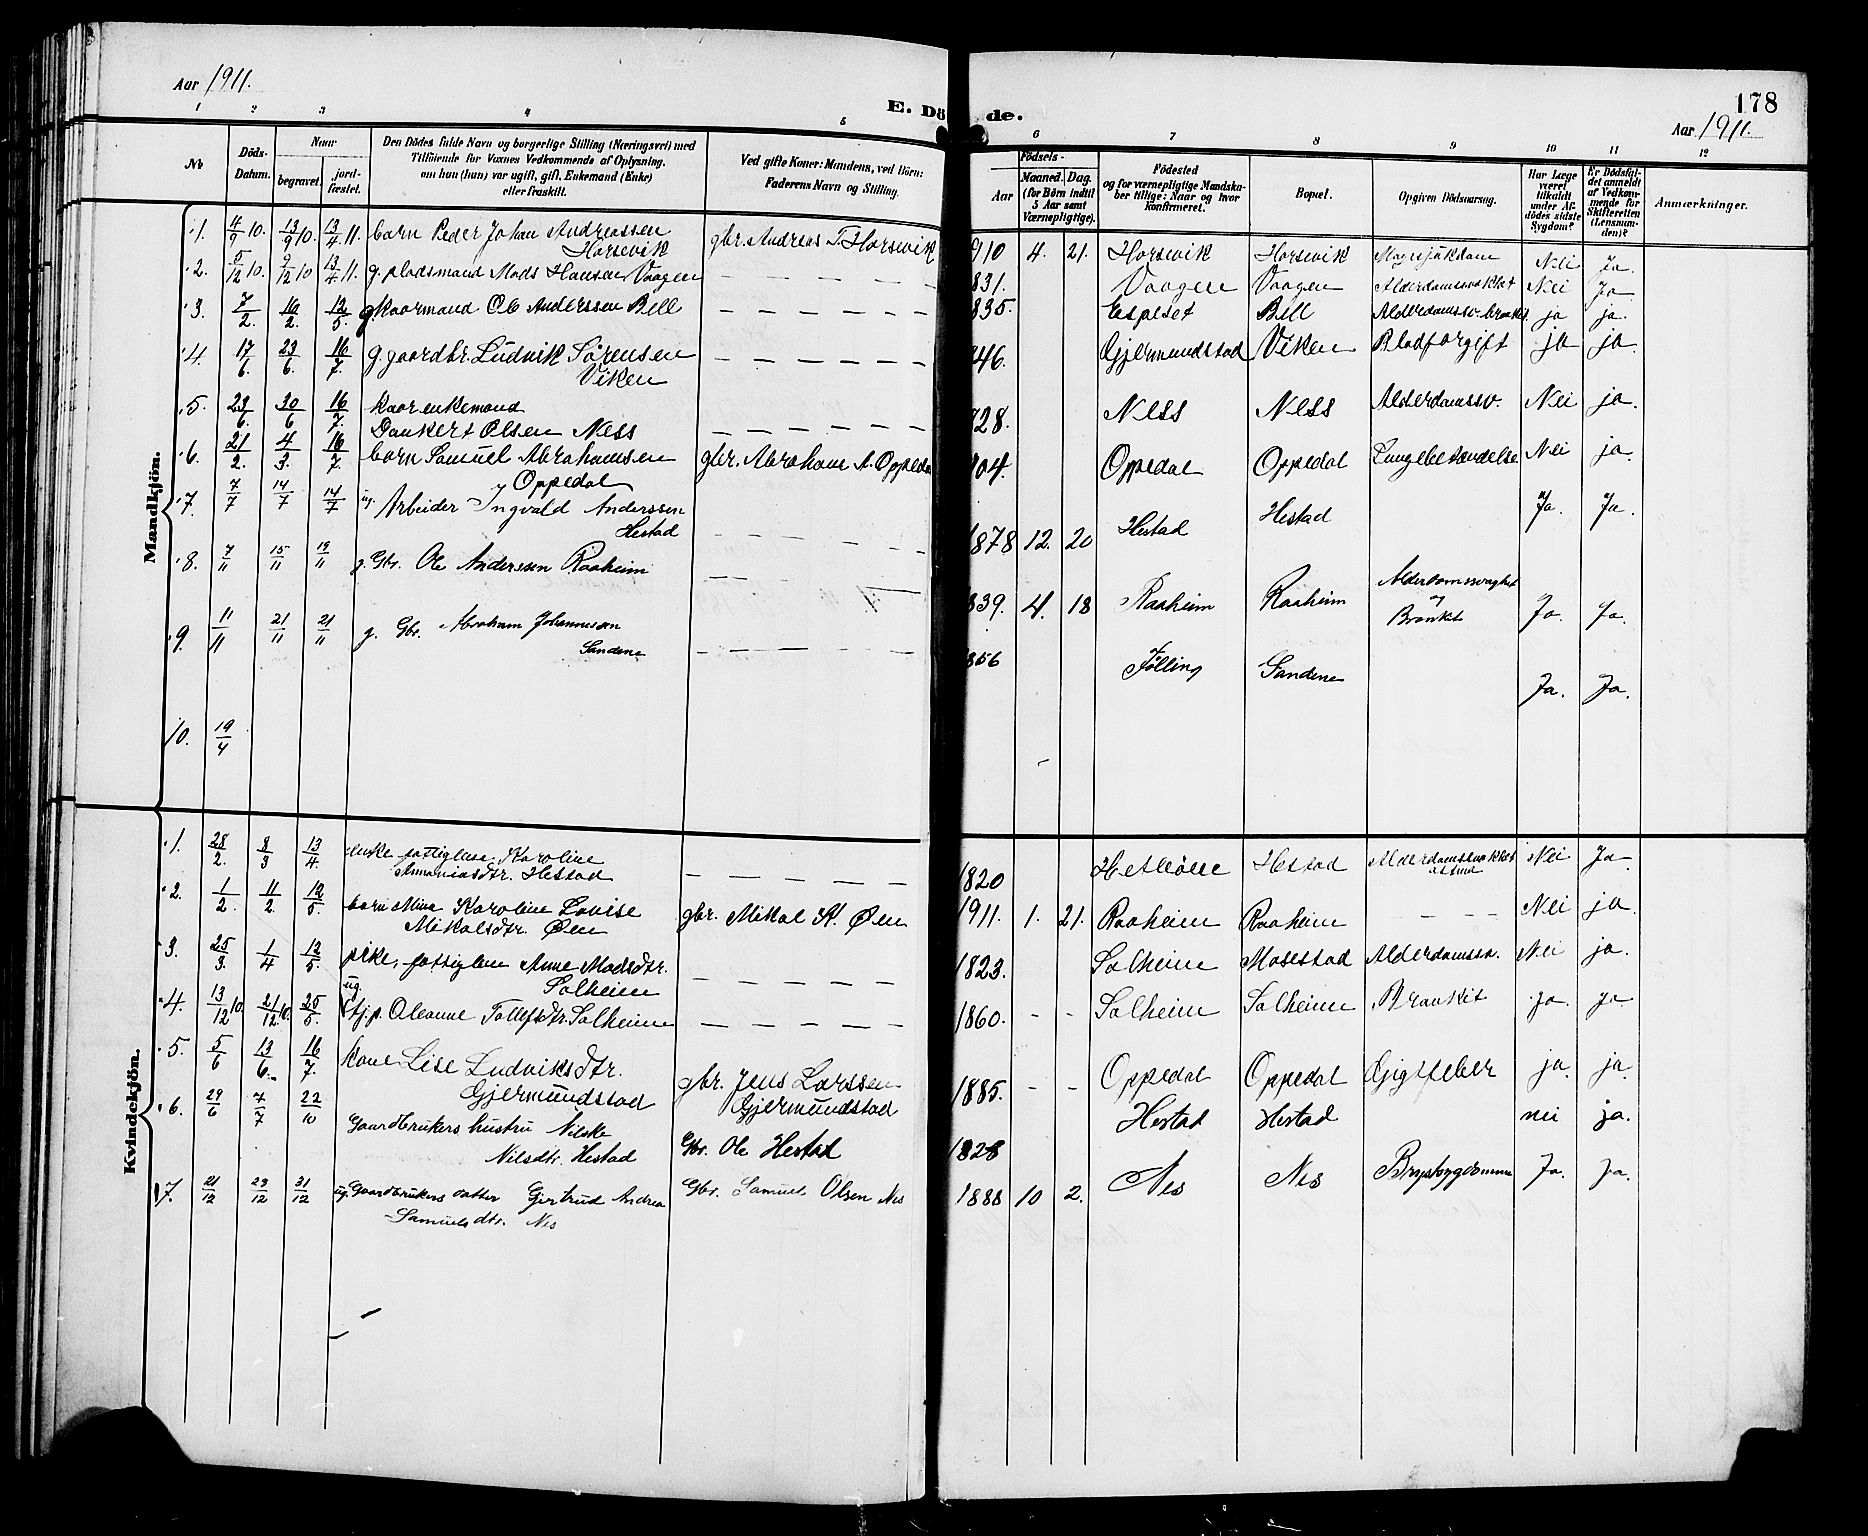 Aar 1911.
E. Dö de.
178
Aar 1911.
1 2 3 4 5 6 7 8 9 10 11 12
No
Döds-
Datum.
Naar
begravet.
jord-
fæstet.
Den Dödes fulde Navn og borgerlige Stilling (Næringsvei) med
Tilföiende for Voxnes Vedkommende af Oplysning,
om han (hun) var ugift, gift, Enkemand (Enke)
eller fraskilt.
Ved gifte Koner: Mandens, ved Börn:
Faderens Navn og Stilling.
Födsels-
Aar
Maaned. Dag.
(for Börn indtil
5 Aar samt
Værnepligtige).
Födested
og for værnepligtige Mandska-
ber tillige: Naar og hvor
konfirmeret.
Bopæl.
Opgiven Dödsaarsag.
Har Læge
været
tilkaldt
under Af-
dödes sidste
Sygdom?
Er Dödsfal-
det anmeldt
af Vedkom-
mende for
Skifteretten
(Lensman-
den)?
Anmærkninger.
Mandkjön.
1. 4/9 10. 13/9 10. 13/4 11. barn Peder Johan Andreassen
Horsevik
gbr. Andreas T. Horsevik 910 4. 21. Horsevik Horsevik Nei Ja.
2. 5/12 10. 9/12 10 13/4 11. g. pladsmand Mads Hansen Vaagen — — — — — 831. Vaagen Vaagen Alderdomssvakhet Nei Ja
3. 7/2. 16/2. 12/5. g. kaarmand Ole Anderssen Bell — — — — — 835. Espeset Bell Alderdomssv. bronkit ja ja.
4. 17/6. 23/6. 16/7. g. gaardbr. Ludvik Sørensen
Viken
— — — — — 46. Gjermundstad Viken Blodforgift ja ja.
5. 23/6. 30/6 16/7. kaarenkemand
Dankert Olsen Ness
— — — — — 28. Ness Ness Alderdomssv. Nei ja.
6. 21/2. 4/3. 16/7. barn Samuel Abrahamsen
Oppedal
gbr. Abraham A. Oppedal 04. Oppedal Oppedal Lungebetændelse Nei ja.
7. 7/7 14/7 14/7 ug. Arbeider Ingvald Anderssen
Hestad
— — — — — 1878 12. 20 Hestad Hestad Ja. Ja.
8. 7/11 15/11 19/11 g. Gbr. Ole Anderssen Raaheim — — — — — 839. 4. 18 Raaheim Raaheim Alderdomssvaghet
og
Bronkit
Ja. Ja.
9. 11/11 21/11 21/11 g. Gbr. Abraham Johannessen
Sandene
— — — — — 856 Tølling Sandene Ja. Ja.
10. 19/4
Kvindekjön.
1. 28/2. 8/3 13/4. enke fattiglem Karoline
Ananiasdtr. Hestad
— — — — — 1820 Hestad Alderdomssvakhet Nei Ja
2. 1/2 11/2. 12/5. barn Mina Karoline Lovise
Mikalsdtr. Øen
gbr. Mikal K. Øen 1911. 1. 21. Raaheim Raaheim — — — Nei ja.
3. 25/3. 1/4 12/5. pike, fattiglem Anne Madsdtr.
Solheim
— — — — — 1823. Solheim Mosestad Alderdomssv. Nei ja.
4. 13/12 10. 21/12 10. 25/5. ug. tj.p. Oleanne Tollefsdtr. Solheim — — — — — 1860. - - Solheim Solheim Bronkit Ja. Ja
5. 5/6 13/6. 16/7. kone Lise Ludviksdtr.
Gjermundstad
gbr. Jens Larssen
Gjermundstad
1885. - - Oppedal Oppedal Gigtfeber ja. ja.
6. 29/6 7/7 22/10 Gaardbrukers hustru Nilske
Nilsdtr. Hestad
Gbr. Ole Hestad 1828 Hestad Hestad nei ja.
7. 21/12 29/12 31/12 ug. Gaardbrukers datter Gjertrud Andrea
Samuelsdtr. Nes
Gbr. Samuel Olsen Nes 1888 10 2. Nes Nes Brystsygdomme Ja. ja.